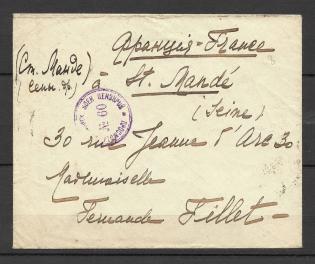 Франція - France
(Ст. Манде)
à St. Mandé
(Seine)
№ 60
30 rue Jeanne d'Arc 30
Mademoiselle
Fernande Fillet